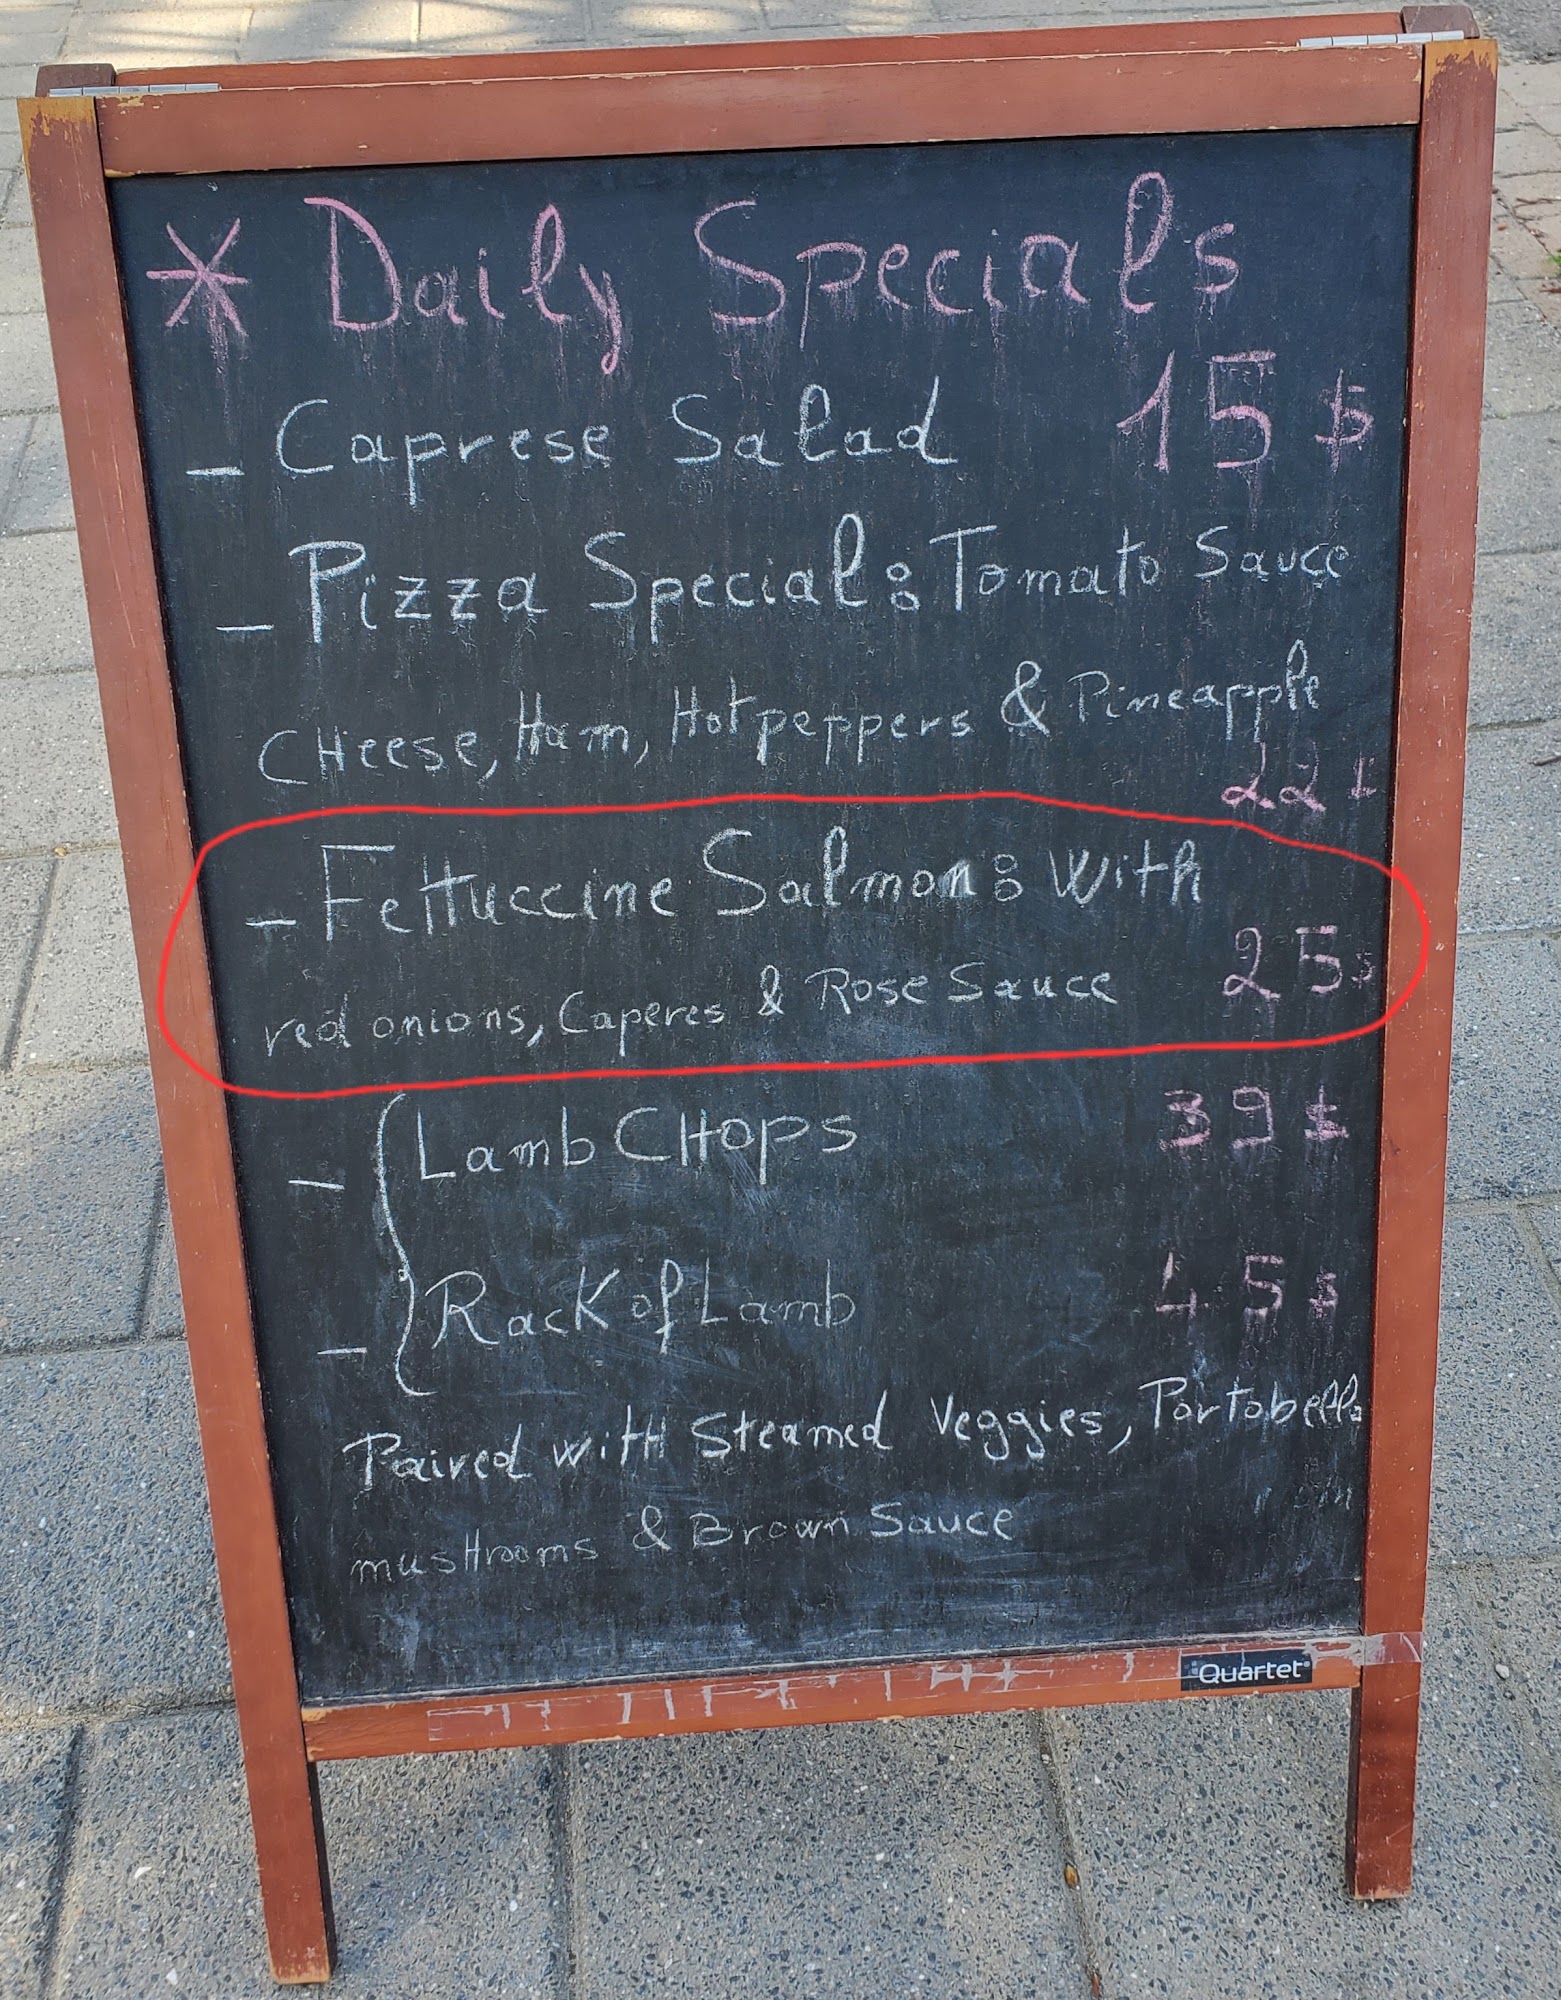 * Daily Specials
- Caprese Salad 15 $
- Pizza Special: Tomato Sauce
CHeese, Ham, Hot peppers & Pineapple
22 $
- Fettuccine Salmon: With
red onions, Caperes & Rose Sauce 25 $
- Lamb CHops 39 $
- Rack of Lamb 45 $
Paired with Steamed Veggies, Portobello
musHrooms & Brown Sauce
Quartet